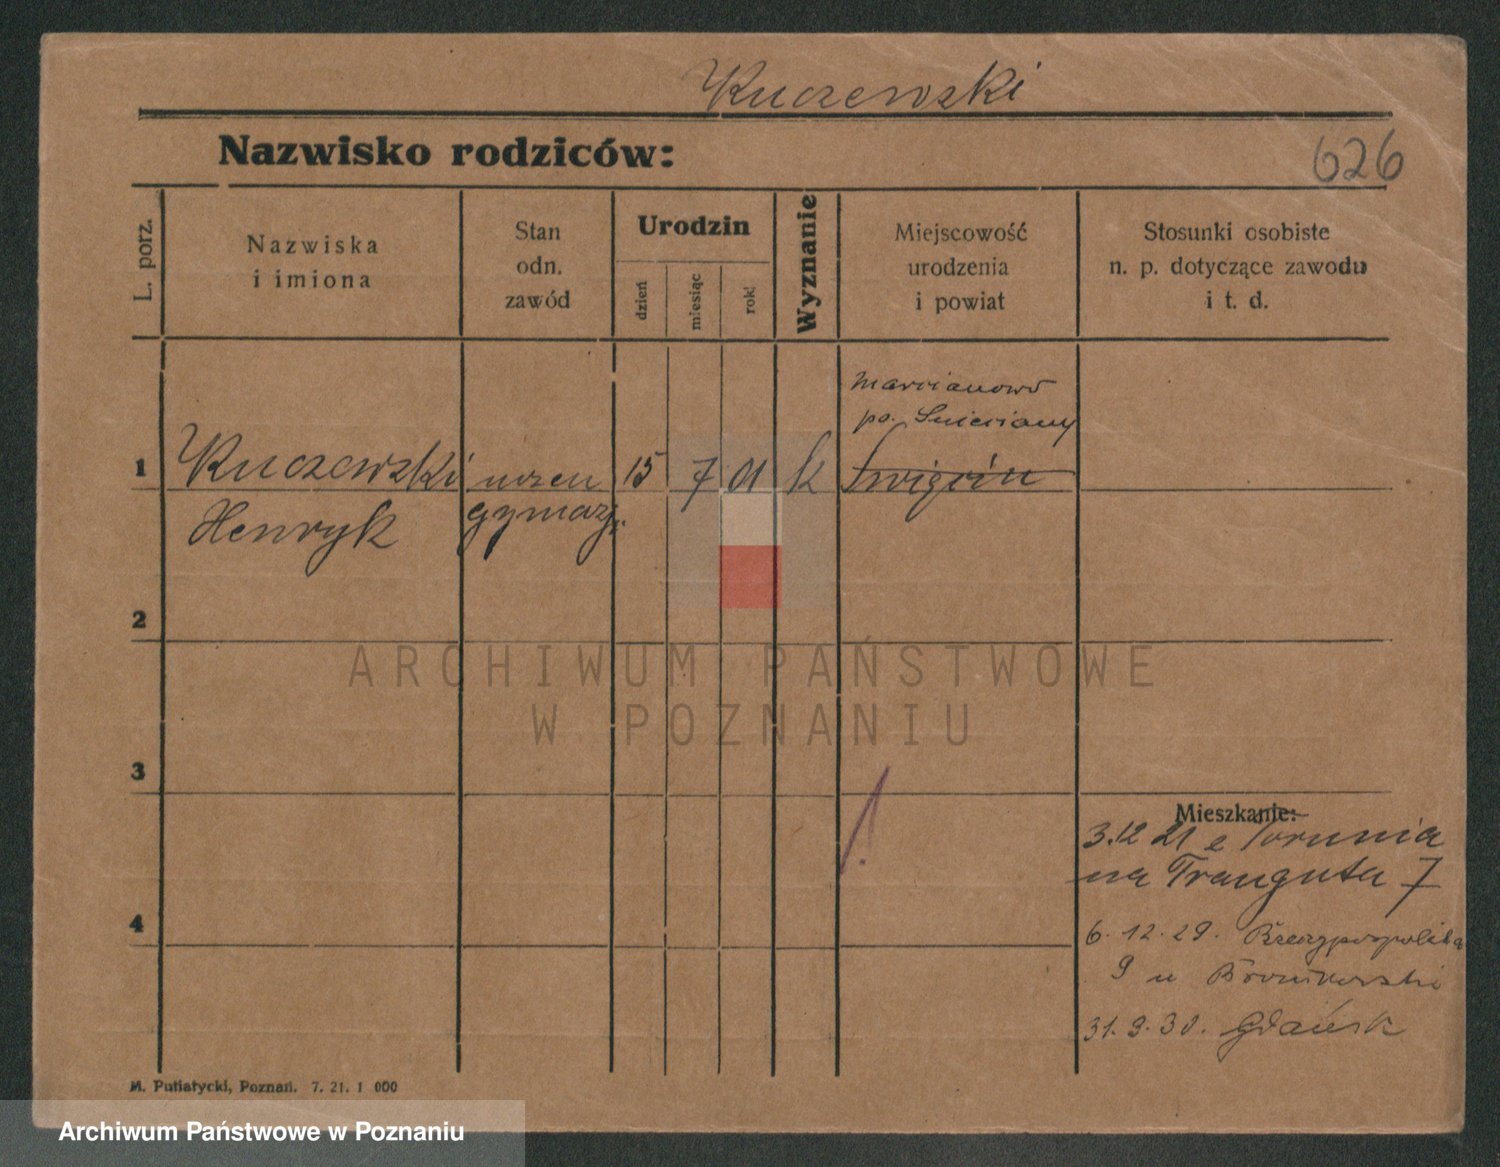 Kuczewski
Nazwisko rodziców:
626
L. porz.
Nazwiska
i imiona
Stan
odn.
zawód
Urodzin
dzień
miesiąc
rok
Wyznanie
Miejscowość
urodzenia
i powiat
Stosunki osobiste
n. p. dotyczące zawodu
i t. d.
Marcianowo
po.
1 Kuczewski uczeń 15 7 01 k
Henryk gymnaz.
2
3
4
Mieszkanie:
3.12 21 z Torunia
na Trauguta 7
6. 12. 29. Rzeczypospolita
9 u Bronikowski
31. 3. 30. Gdańsk
M. Putiatycki, Poznań. 7. 21. 1 000
ARCHIWUM PAŃSTWOWE
W POZNANIU
Archiwum Państwowe w Poznaniu